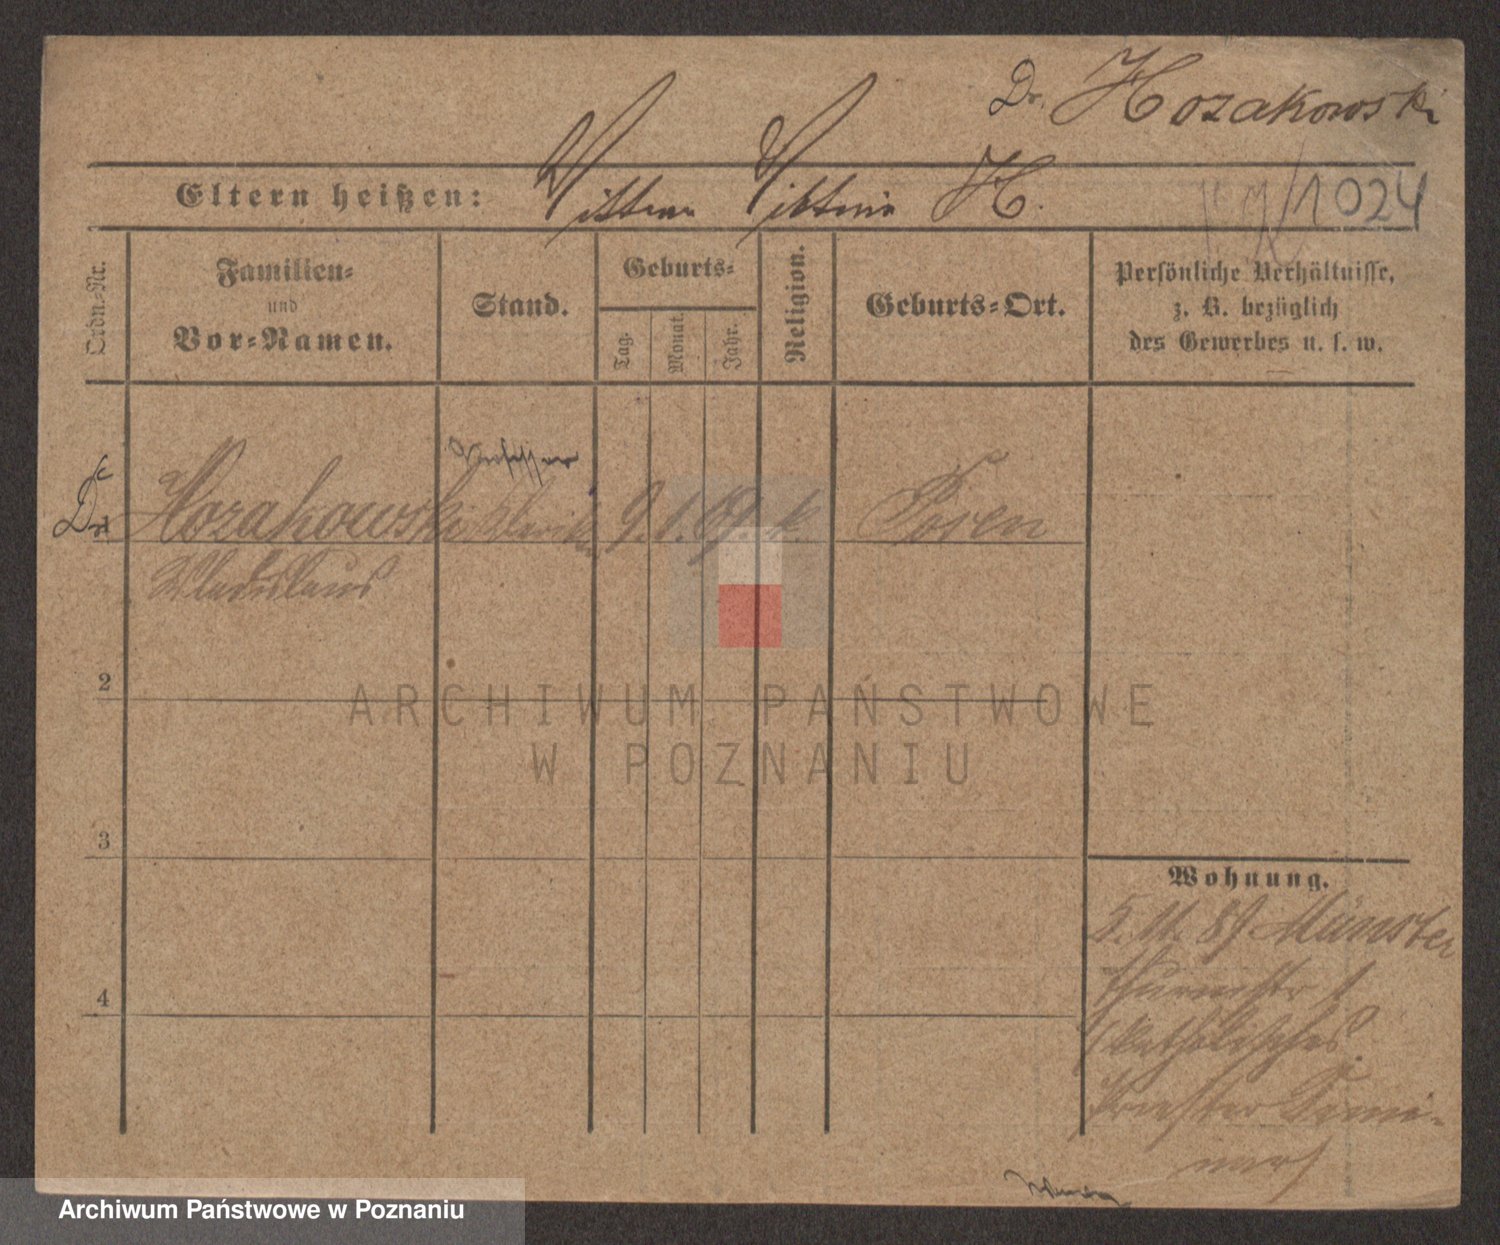 Dr. Hozakowski
Eltern heißen: Wittwe Viktoria H.
1024
Ordn-Nr.
Familien=
und
Vor=Namen.
Stand.
Geburts=
Tag.
Monat.
Jahr.
Religion.
Geburts=Ort.
Persönliche Verhältnisse,
z. B. bezüglich
des Gewerbes u. s. w.
Professor
Dr. 1 Hozakowski Kleriker 9. 1. 69. k. Posen
Wladislaus
2
ARCHIWUM PAŃSTWOWE
W POZNANIU
3
Wohnung.
5. 11. 89 Münster
4
(katholisches
Priester Semi-
nar)
Archiwum Państwowe w Poznaniu